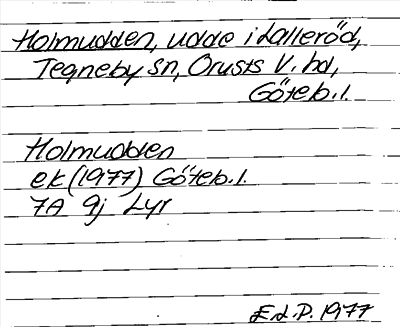 Holmudden, udde i Lalleröd,
Tegneby sn, Orusts V. hd,
Göteb. l.
Holmudden
ek (1977) Göteb. l.
7A 9j Lyr
E.d.P. 1977